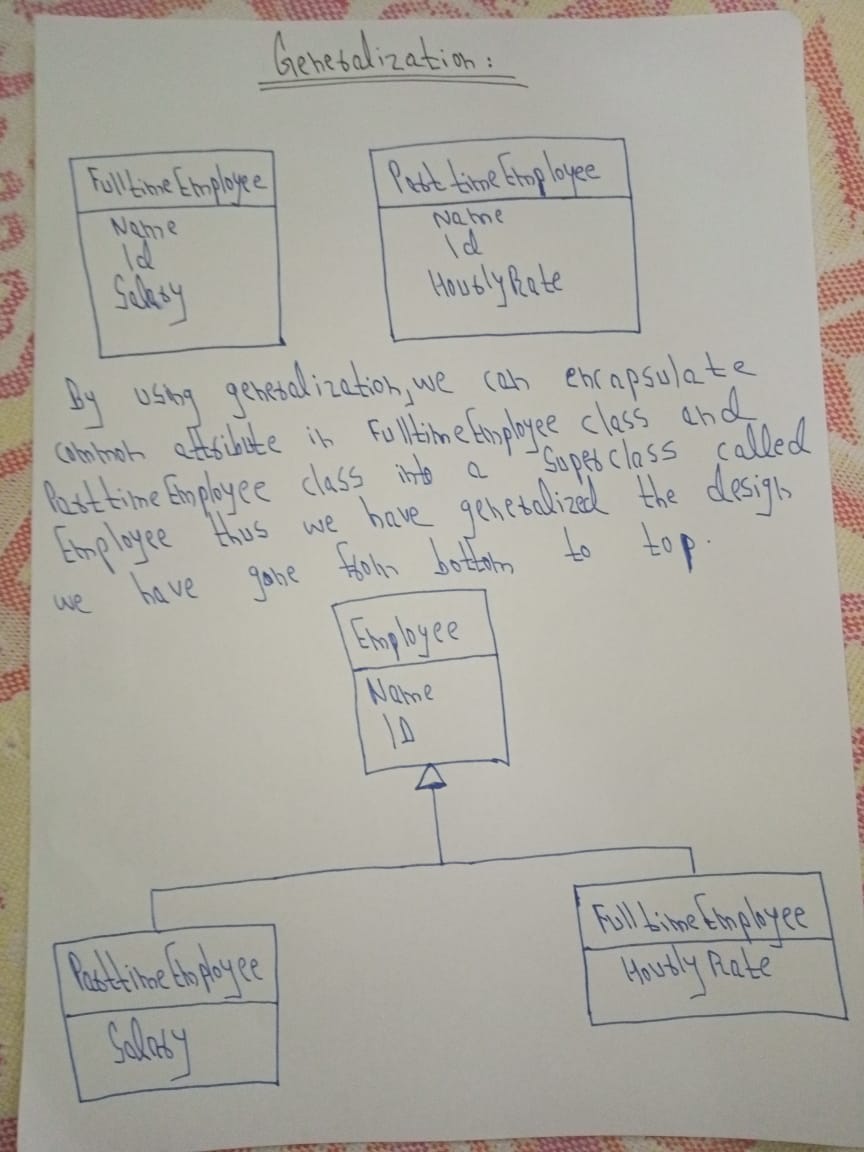 Generalization:
FulltimeEmployee
Name
Id
Salary
Part timeEmployee
Name
Id
HourlyRate
By using generalization, we can encapsulate
common attribute in FulltimeEmployee class and
ParttimeEmployee class into a Superclass called
Employee thus we have generalized the design
we have gone from bottom to top.
Employee
Name
ID
ParttimeEmployee
Salary
FulltimeEmployee
Hourly Rate